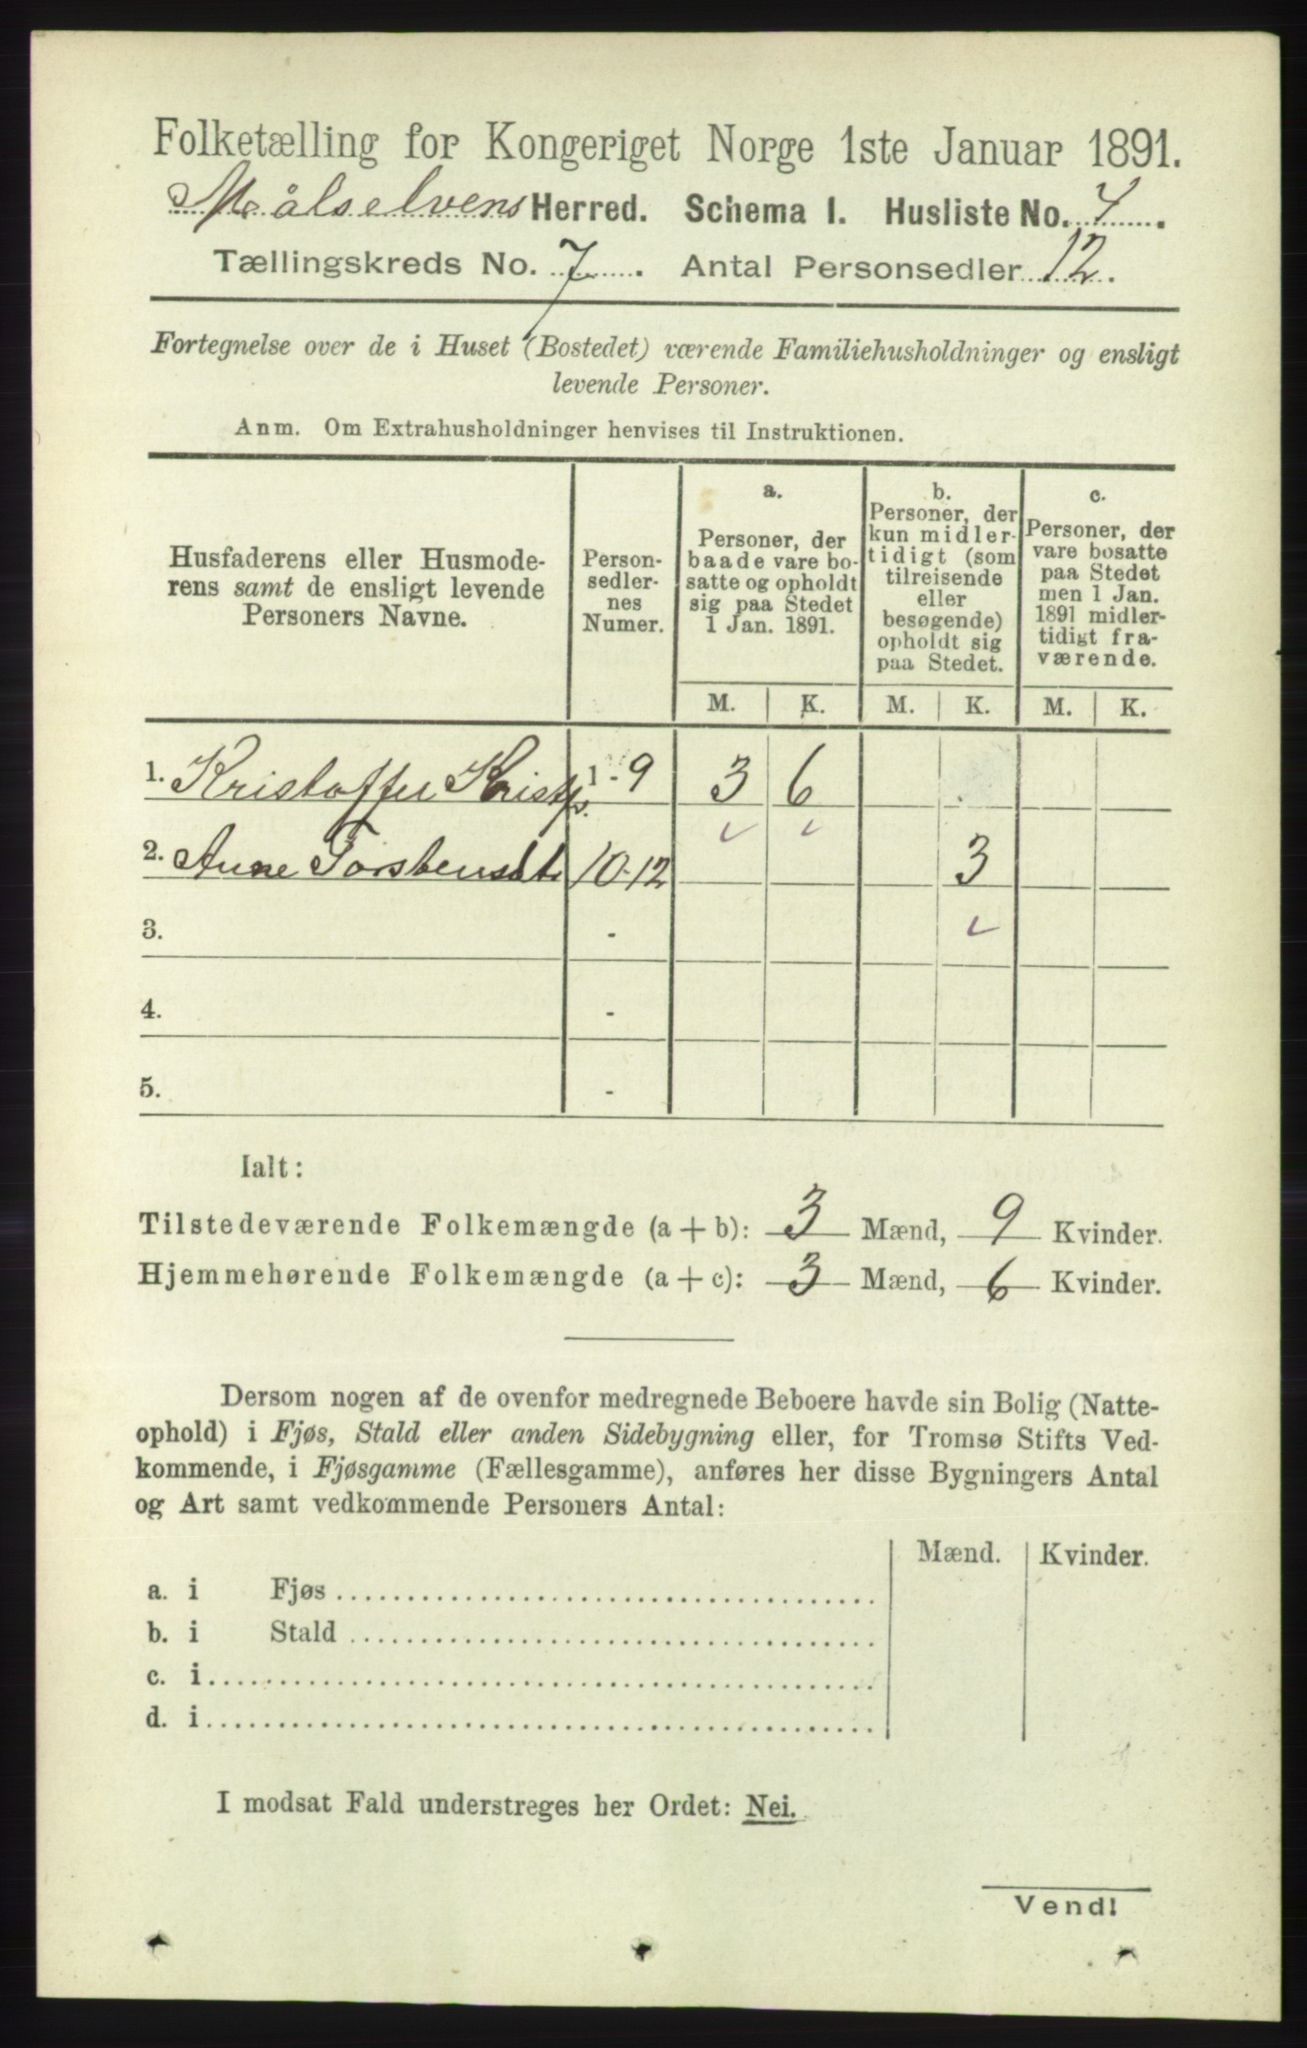 Folketælling for Kongeriget Norge 1ste Januar 1891.
Målselvens Herred. Schema I. Husliste No. 4.
Tællingskreds No. 7. Antal Personsedler 12.
Fortegnelse over de i Huset (Bostedet) værende Familiehusholdninger og ensligt
levende Personer.
Anm. Om Extrahusholdninger henvises til Instruktionen.
Husfaderens eller Husmode-
rens samt de ensligt levende
Personers Navne.
Person-
sedler-
nes
Numer.
a.
Personer, der
baade vare bo-
satte og opholdt
sig paa Stedet
1 Jan. 1891.
b.
Personer, der
kun midler-
tidigt (som
tilreisende
eller
besøgende)
opholdt sig
paa Stedet.
c.
Personer, der
vare bosatte
paa Stedet
men 1 Jan.
1891 midler-
tidigt fra-
værende.
M. K. M. K. M. K.
1. Kristoffer Kristfs. 1-9 3 6
2. Anne Torstensdt. 10-12 3
3. -
4. -
5. -
Ialt:
Tilstedeværende Folkemængde (a + b): 3 Mænd, 9 Kvinder.
Hjemmehørende Folkemængde (a + c): 3 Mænd, 6 Kvinder.
Dersom nogen af de ovenfor medregnede Beboere havde sin Bolig (Natte-
ophold) i Fjøs, Stald eller anden Sidebygning eller, for Tromsø Stifts Ved-
kommende, i Fjøsgamme (Fællesgamme), anføres her disse Bygningers Antal
og Art samt vedkommende Personers Antal:
Mænd. Kvinder.
a. i Fjøs
b. i Stald
c. i
d. i
I modsat Fald understreges her Ordet: Nei.
Vend!